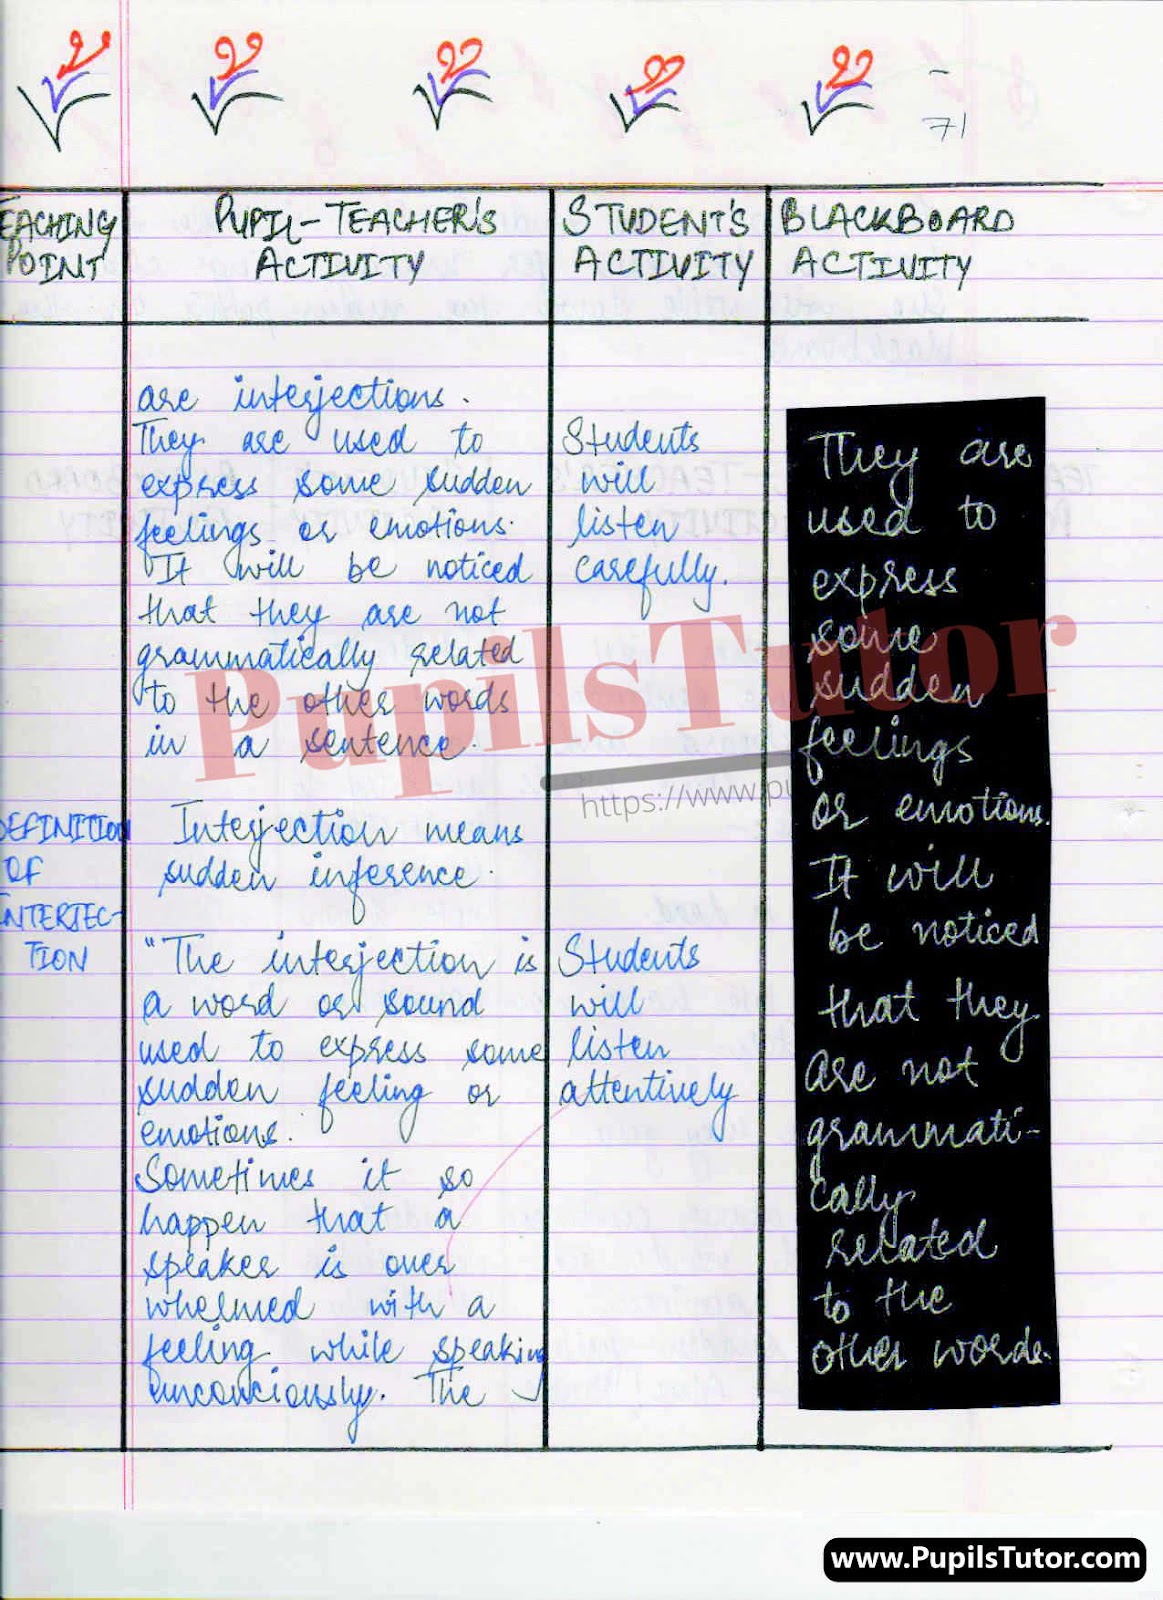 71
EACHING
POINT
PUPIL-TEACHER'S
ACTIVITY
STUDENT'S
ACTIVITY
BLACKBOARD
ACTIVITY
are interjections.
They are used to
express some sudden
feelings or emotions.
It will be noticed
that they are not
grammatically related
to the other words
in a sentence.
Students
will
listen
carefully.
DEFINITION
OF
INTERJEC-
TION
Interjection means
sudden inference.
"The interjection is
a word or sound
used to express some
sudden feeling or
emotions.
Sometimes it so
happen that a
speaker is over
whelmed with a
feeling while speaking
unconciously. The
Students
will
listen
attentively
They are
used to
express
some
sudden
feelings
or emotions.
It will
be noticed
that they
are not
grammati-
cally
related
to the
other words.
PupilsTutor
https://www.pu
www.PupilsTutor.com